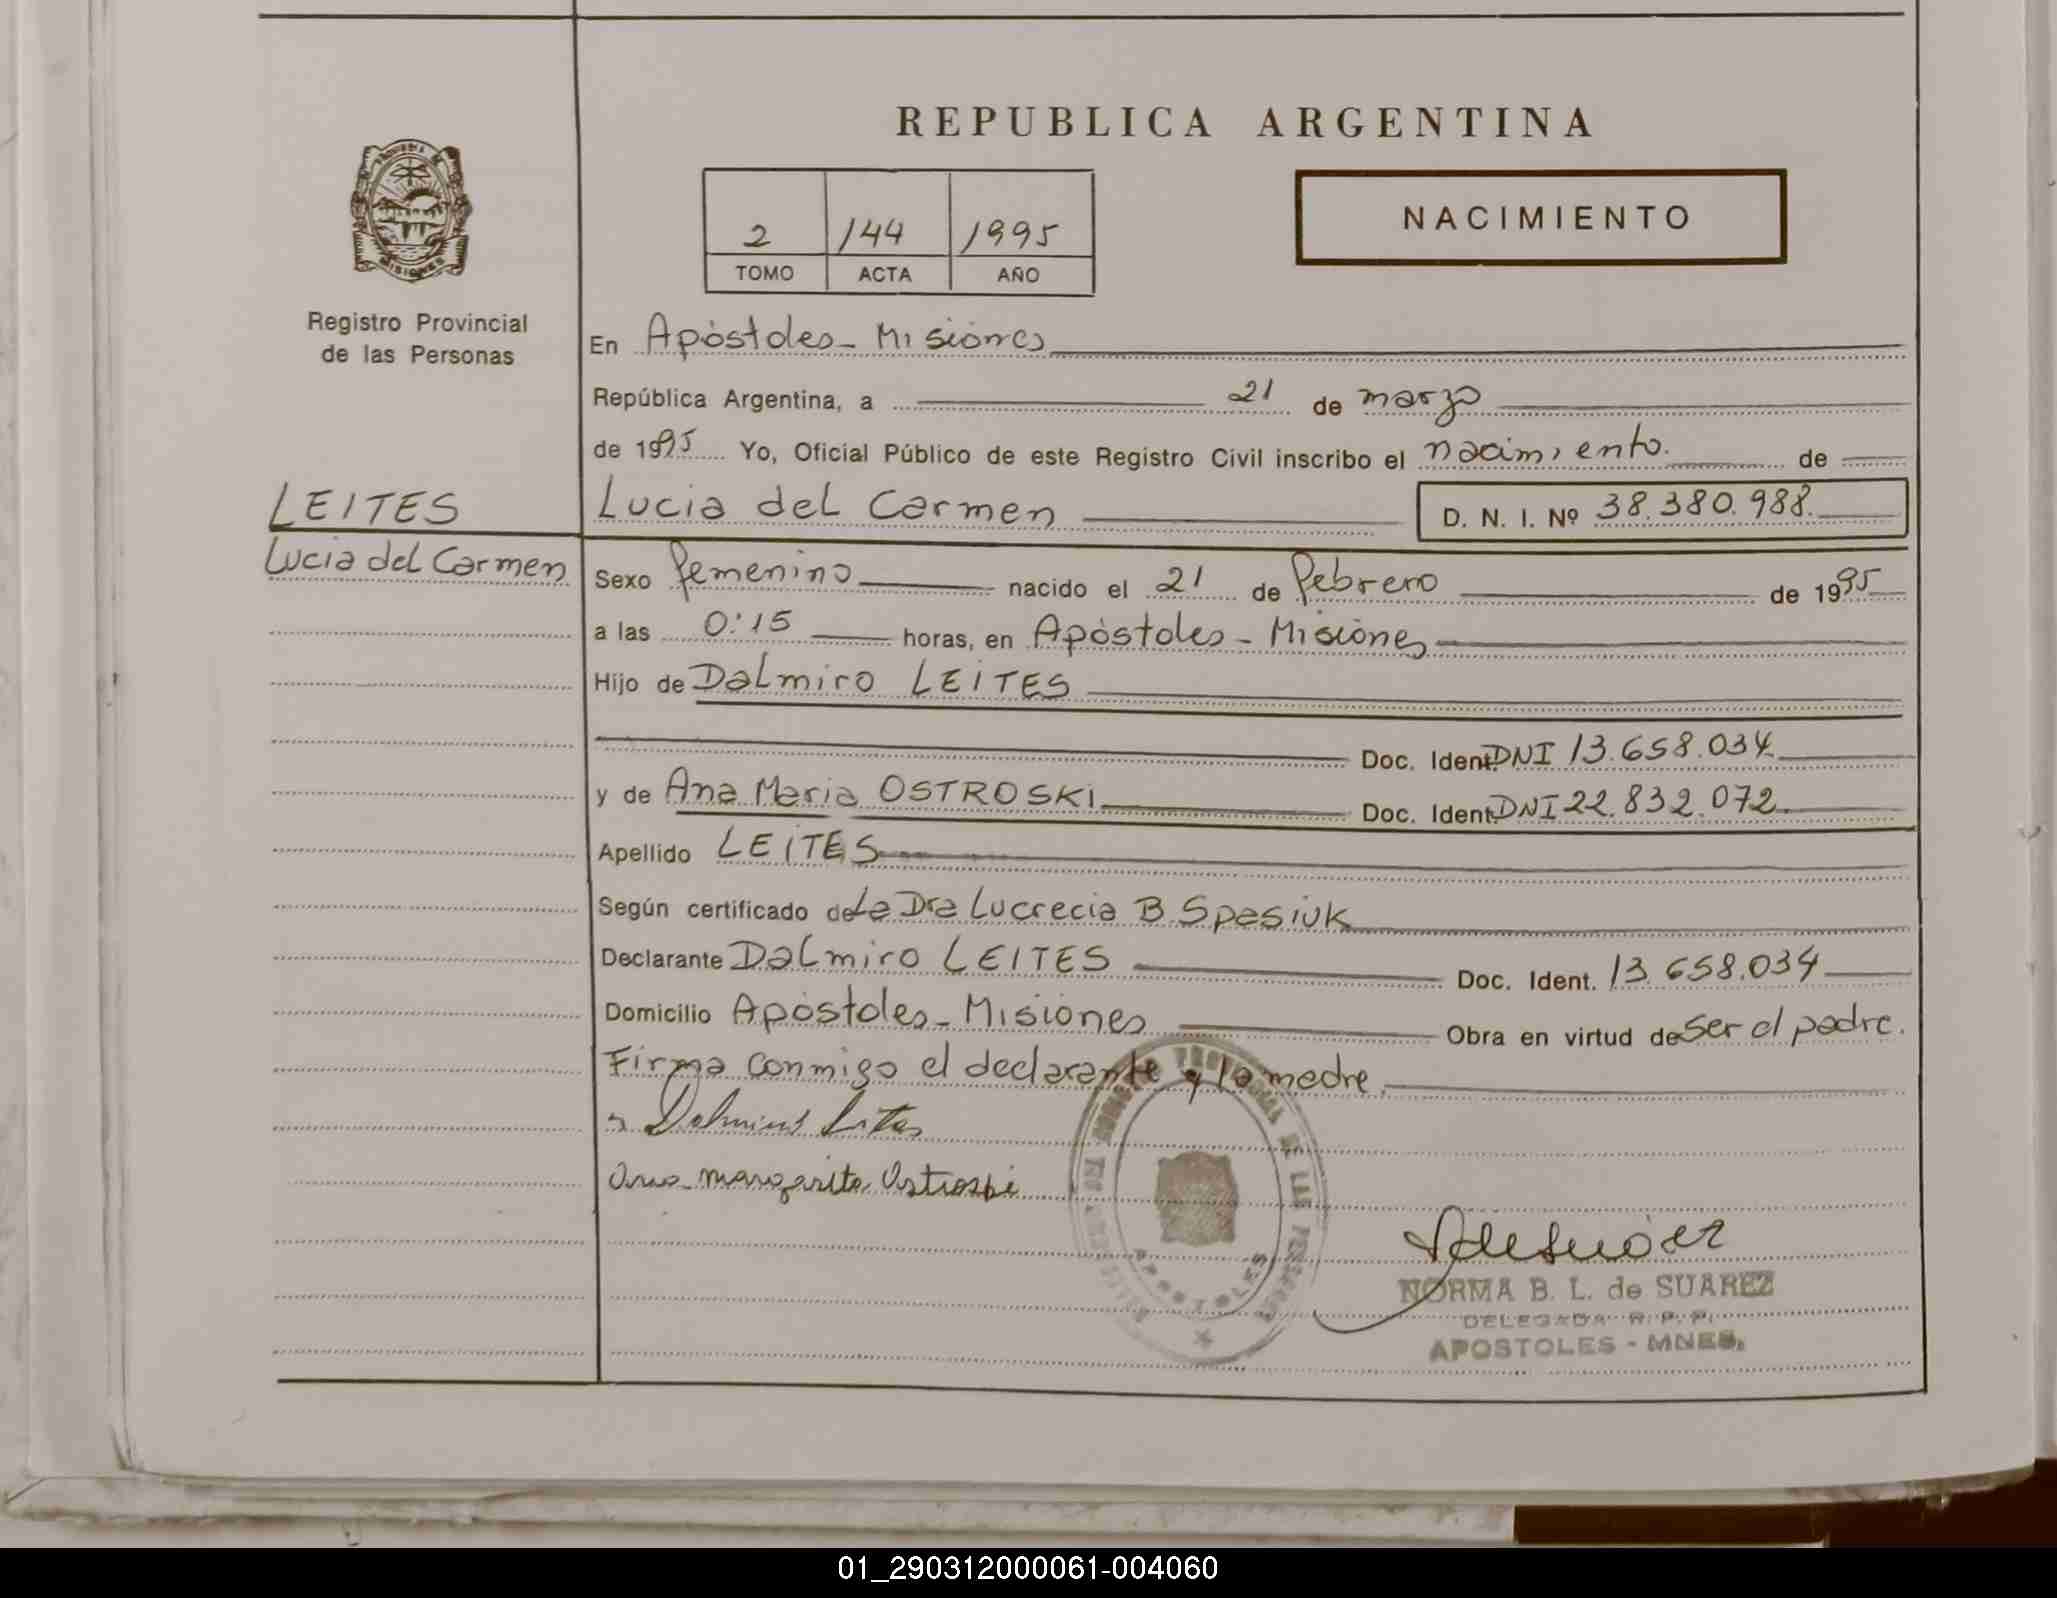 REPUBLICA ARGENTINA
PROVINCIA DE
MISIONES
Registro Provincial
de las Personas
2 144 1995
TOMO ACTA AÑO
NACIMIENTO
En Apóstoles - Misiones
República Argentina, a 21 de marzo
de 1995 Yo, Oficial Público de este Registro Civil inscribo el nacimiento. de
LEITES
Lucia del Carmen
Lucia del Carmen D. N. I. Nº 38.380.988.
Sexo femenino nacido el 21 de febrero de 1995
a las 0:15 horas, en Apóstoles - Misiones
Hijo de Dalmiro LEITES
Doc. Ident. DNI 13.658.034.
y de Ana Maria OSTROSKI Doc. Ident. DNI 22.832.072.
Apellido LEITES
Según certificado de La Dra Lucrecia B. Spasiuk
Declarante Dalmiro LEITES Doc. Ident. 13.658.034
Domicilio Apóstoles - Misiones Obra en virtud de ser el padre.
Firma conmigo el declarante y la madre.
Dalmiro Leites
Ana margarita Ostroski
REGISTRO PROVINCIAL DE LAS PERSONAS
APOSTOLES
NORMA B. L. de SUAREZ
DELEGADA R. P. P.
APOSTOLES - MNES.
01_290312000061-004060